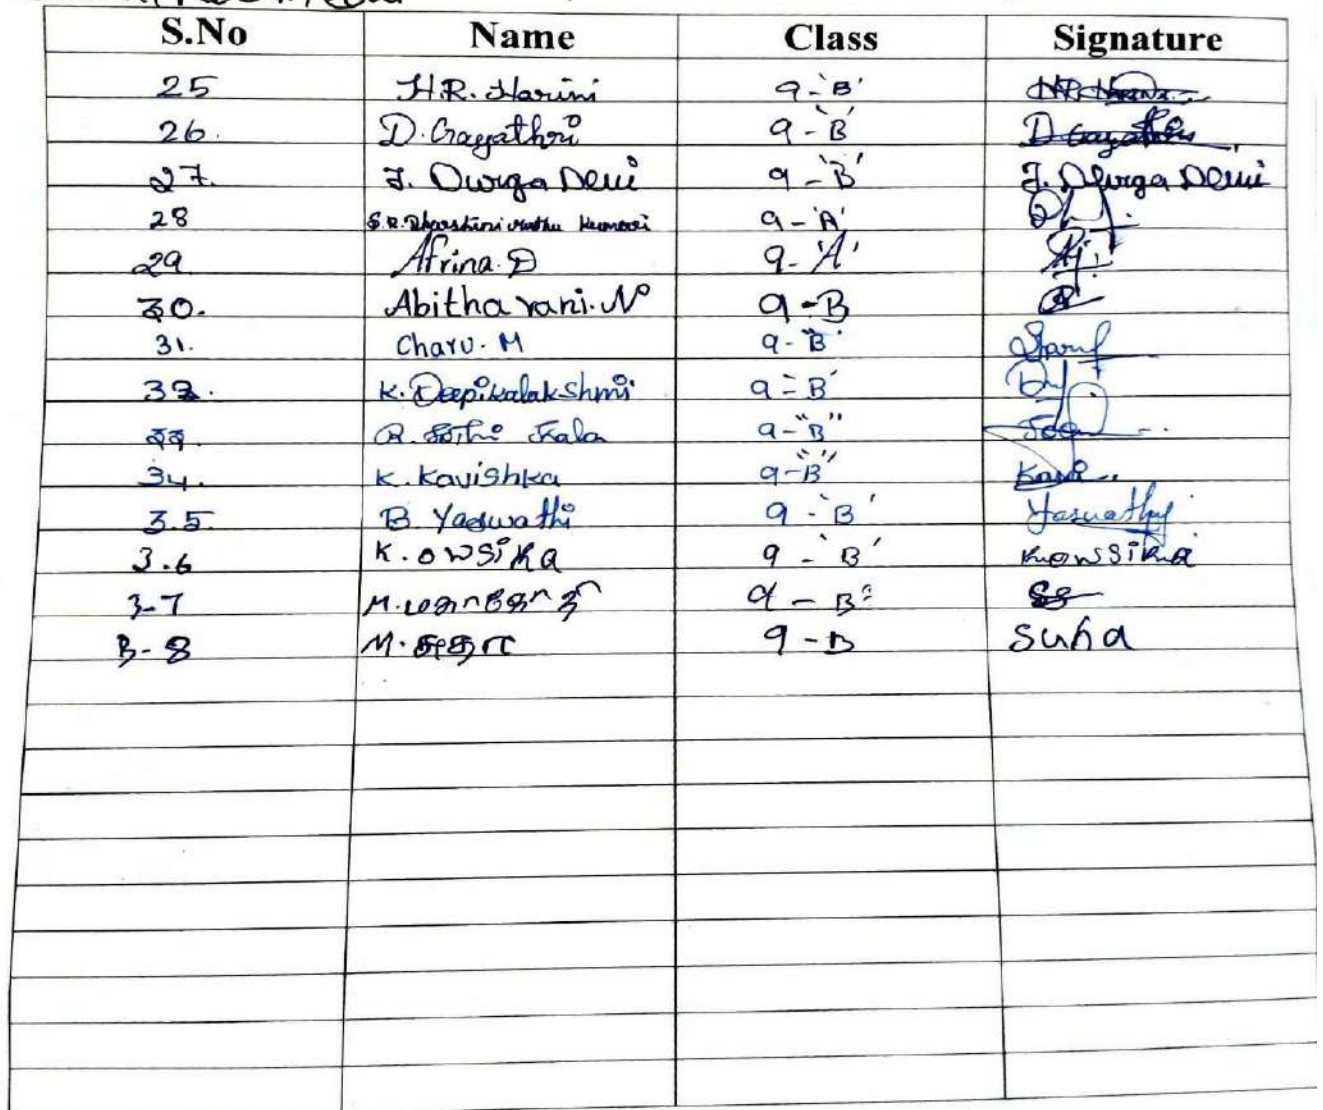 S.No Name Class Signature
25 H.R. Harini 9-'B'
26. D. Gayathri 9-'B' D Gayathri
27. J. Durga Devi 9-'B' J. Durga Devi
28 S.R. Dharshini Muthu Kumari 9-'A'
29 Afrina. D 9-'A'
30. Abitha rani. N 9-B
31. Charu. M 9-"B"
32. K. Deepikalakshmi 9-'B'
33. R. Kala 9-"B"
34. K. Kavishka 9-"B" Kavi
3.5 B. Yaswathi 9-'B' Yaswathy
3.6 K. owsika 9-'B' Kowsika
3-7 M. 9-B
3-8 M. சுதா 9-B Suha